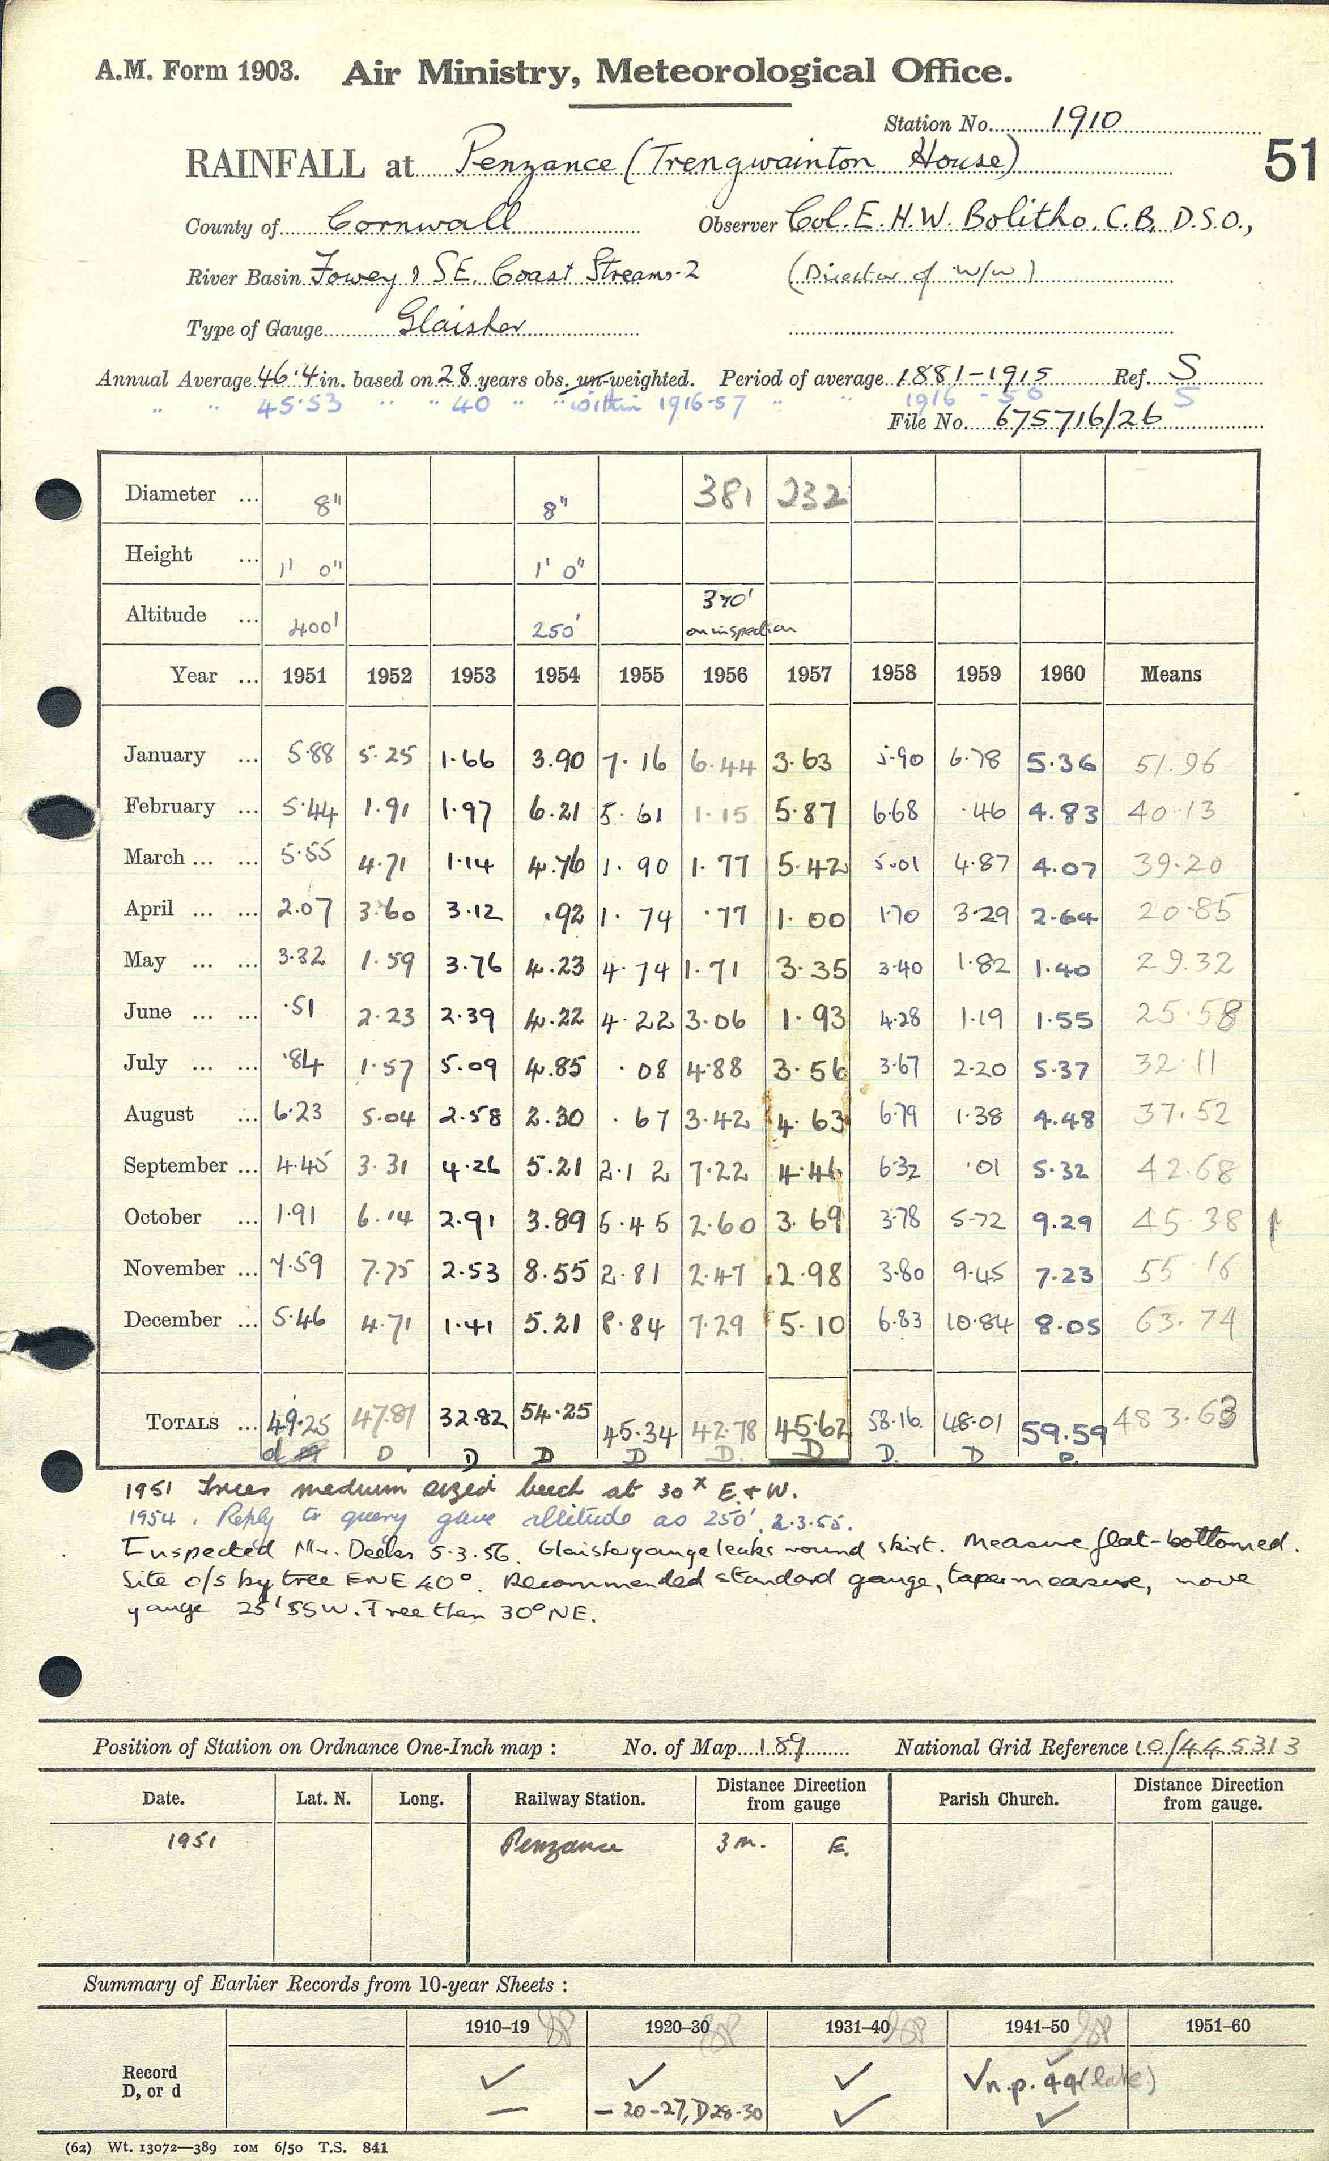 A.M. Form 1903. Air Ministry, Meteorological Office.
Station No. 1910
51
RAINFALL at Penzance (Trengwainton House)
County of Cornwall Observer Col. E. H. W. Bolitho, C.B, D.S.O.,
River Basin Fowey & SE. Coast Streams-2 (Director of W/W)
Type of Gauge Glaisher
Annual Average 46.4 in. based on 28 years obs. un-weighted. Period of average 1881-1915 Ref. S
" " 45.53 " " 40 " " within 1916-57 " " 1916-50 S
File No. 675716/26
Diameter ... 8" 8" 381 232
Height ... 1' 0" 1' 0"
Altitude ... 400' 250' 370' on inspection
Year ... 1951 1952 1953 1954 1955 1956 1957 1958 1959 1960 Means
January ... 5.88 5.25 1.66 3.90 7.16 6.44 3.63 5.90 6.78 5.36 51.96
February ... 5.44 1.91 1.97 6.21 5.61 1.15 5.87 6.68 .46 4.83 40.13
March ... ... 5.55 4.71 1.14 4.76 1.90 1.77 5.42 5.01 4.87 4.07 39.20
April ... ... 2.07 3.60 3.12 .92 1.74 .77 1.00 1.70 3.29 2.64 20.85
May ... ... 3.32 1.59 3.76 4.23 4.74 1.71 3.35 3.40 1.82 1.40 29.32
June ... ... .51 2.23 2.39 4.22 4.22 3.06 1.93 4.28 1.19 1.55 25.58
July ... ... .84 1.57 5.09 4.85 .08 4.88 3.56 3.67 2.20 5.37 32.11
August ... 6.23 5.04 2.58 2.30 .67 3.42 4.63 6.79 1.38 4.48 37.52
September ... 4.45 3.31 4.26 5.21 2.12 7.22 4.46 6.32 .01 5.32 42.68
October ... 1.91 6.14 2.91 3.89 5.45 2.60 3.69 3.78 5.72 9.29 45.38
November ... 7.59 7.75 2.53 8.55 2.81 2.47 2.98 3.80 9.45 7.23 55.16
December ... 5.46 4.71 1.41 5.21 8.84 7.29 5.10 6.83 10.84 8.05 63.74
TOTALS ... 49.25 47.81 32.82 54.25 45.34 42.78 45.62 58.16 48.01 59.59 483.63
d D D D D D D D D
1951 Trees medium sized beech at 30x E.+W.
1954. Reply to query gave altitude as 250'. 2.3.55.
Inspected Mr. 5.3.56. Glaisher gauge leaks round skirt. Measure flat-bottomed.
Site o/s by tree ENE 40°. Recommended standard gauge, taper measure, move
gauge 25' SSW. Tree then 30° NE.
Position of Station on Ordnance One-Inch map : No. of Map 189 National Grid Reference 10/445313
Date. Lat. N. Long. Railway Station. Distance from Direction gauge Parish Church. Distance from Direction gauge.
1951 Penzance 3 m. E.
Summary of Earlier Records from 10-year Sheets :
1910-19 1920-30 1931-40 1941-50 1951-60
Record ✓ ✓ ✓ ✓ n.p. 49 (late)
D, or d — — 20-27, D 28-30 ✓ ✓
(62) Wt. 13072—389 10M 6/50 T.S. 841